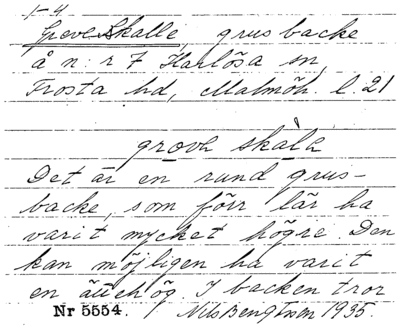 1-4
Greveskalle, grusbacke
å n:r 7 Harlösa sn,
Frosta hd, Malmöh. l. 21
grove skàla
Det är en rund grus-
backe, som förr lär ha
varit mycket högre. Den
kan möjligen ha varit
en ättehög I backen tror
Nr 5554. Nils Bengtson 1935.